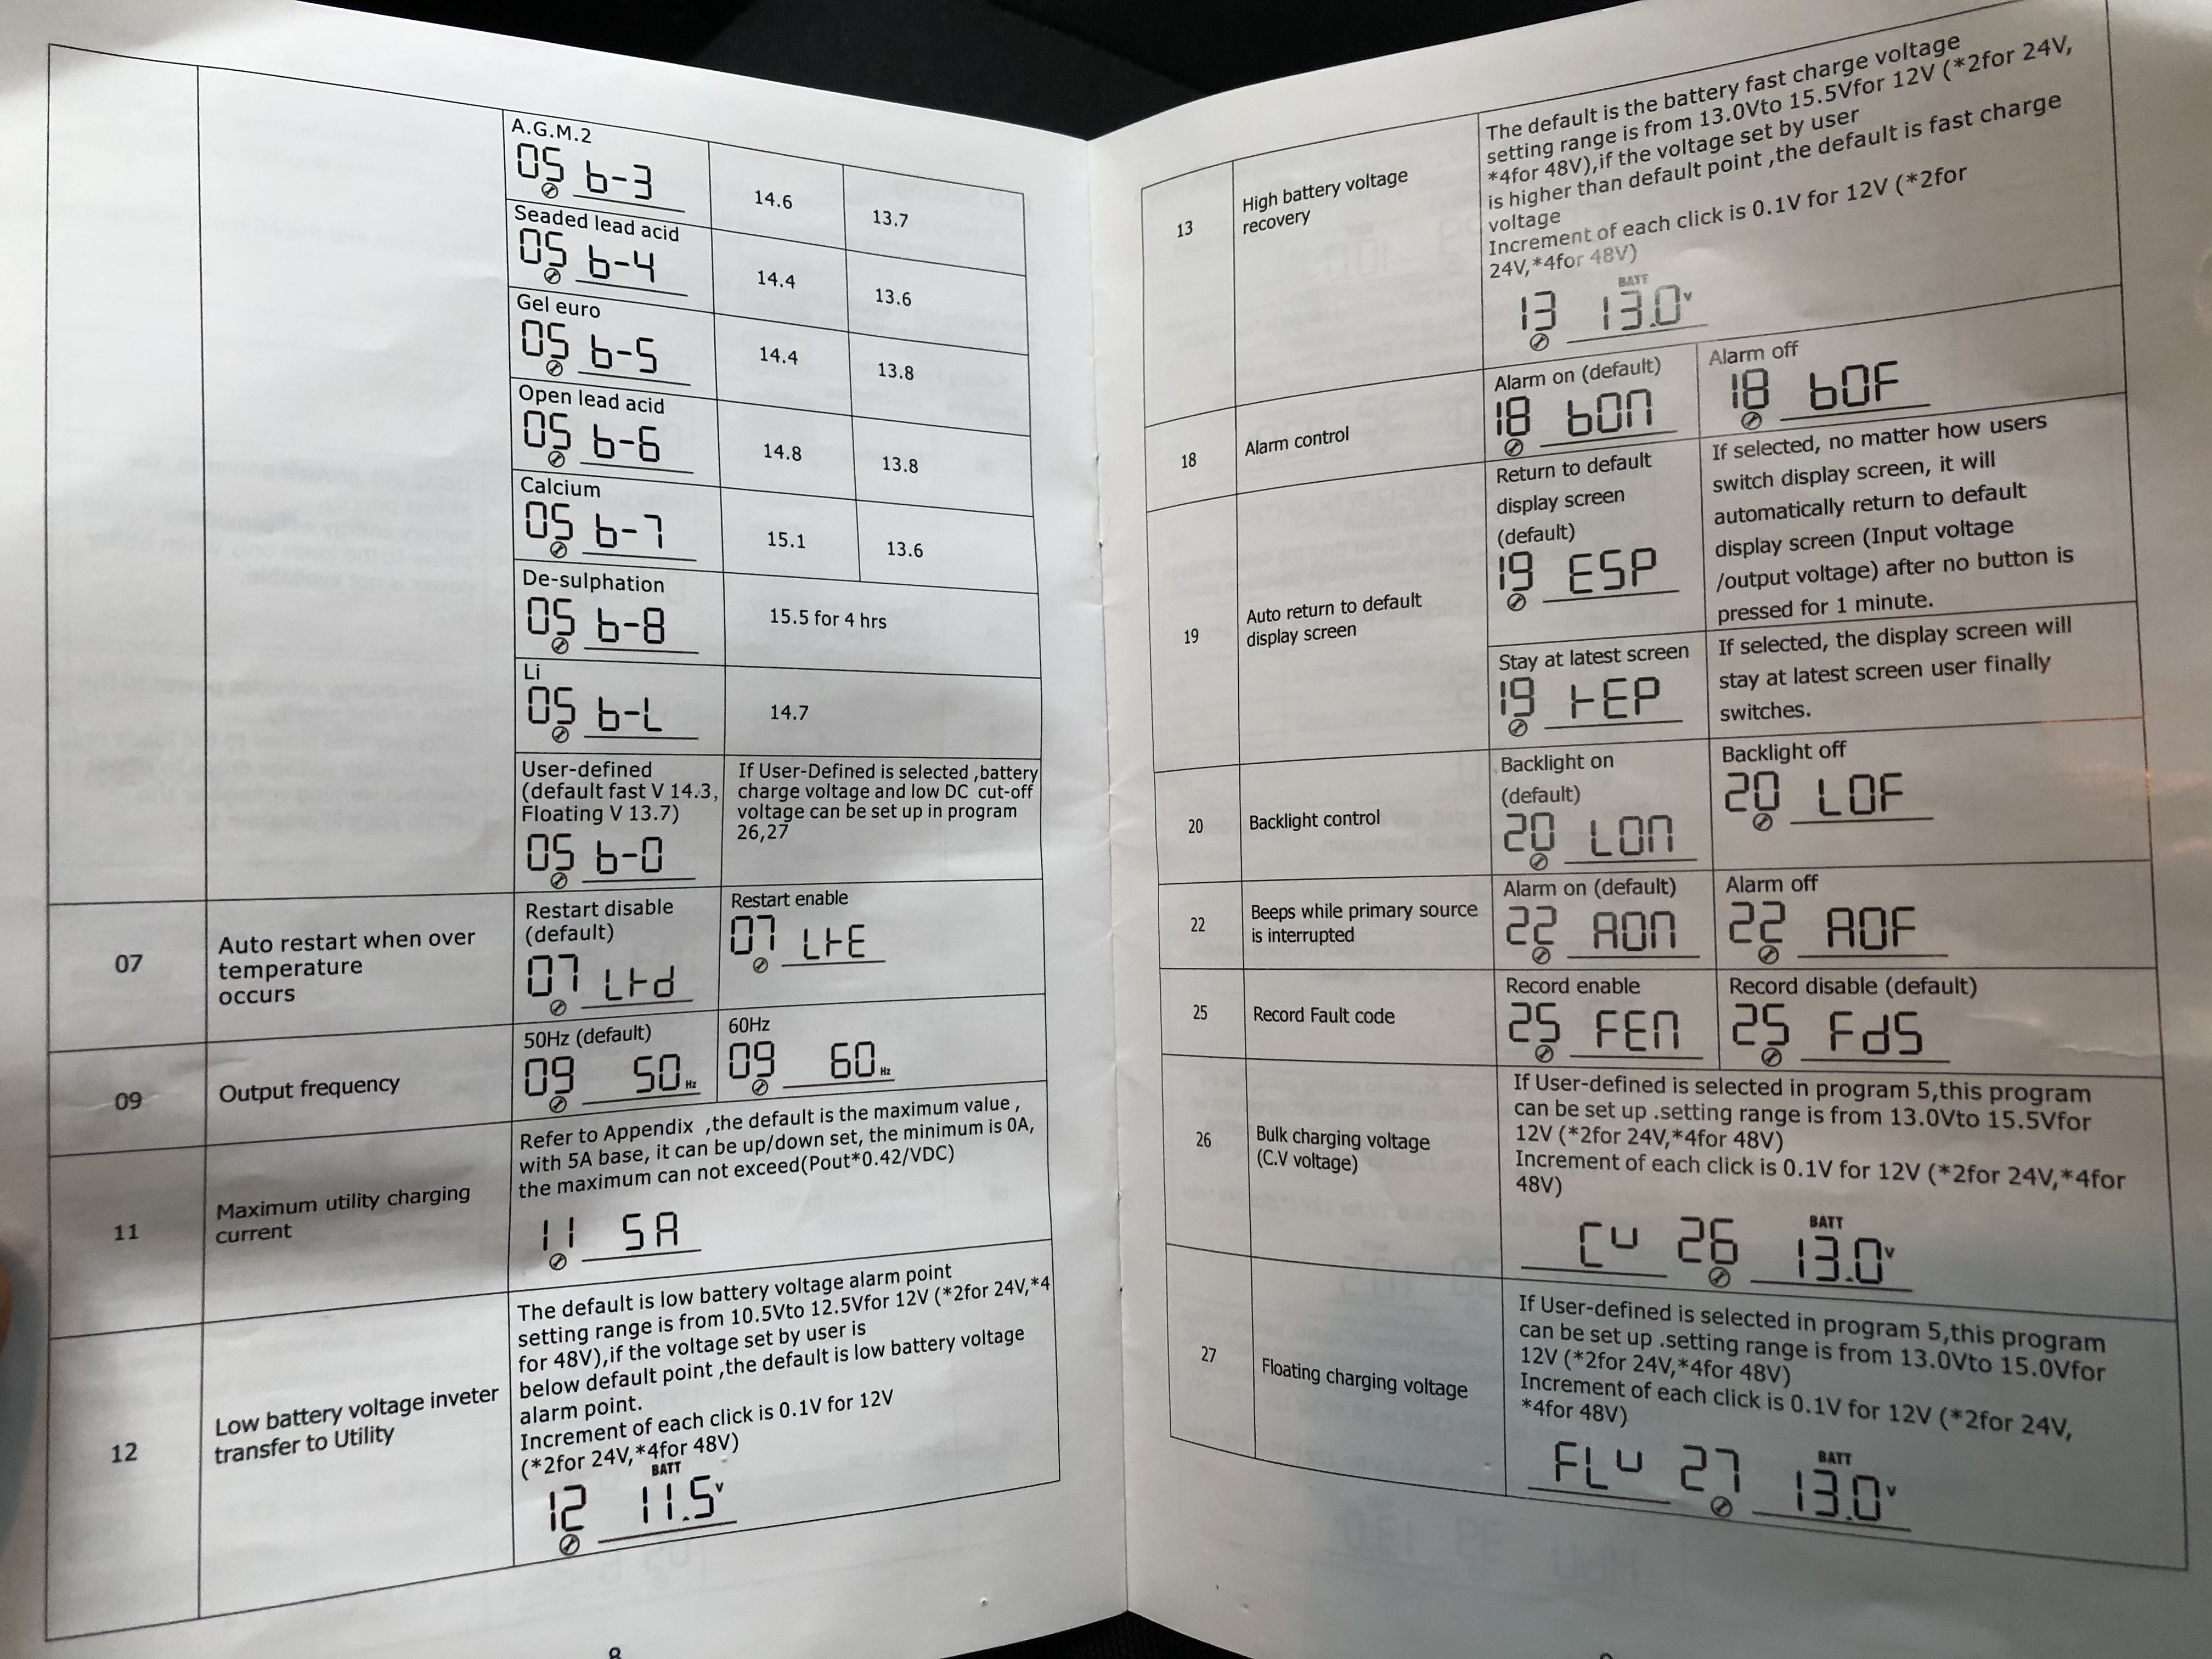 A.G.M.2
05 b-3
14.6
13.7
Seaded lead acid
05 b-4
14.4
13.6
Gel euro
05 b-5
14.4
13.8
Open lead acid
05 b-6
14.8
13.8
Calcium
05 b-7
15.1
13.6
De-sulphation
05 b-8
15.5 for 4 hrs
Li
05 b-L
14.7
User-defined
(default fast V 14.3,
Floating V 13.7)
05 b-0
If User-Defined is selected ,battery
charge voltage and low DC cut-off
voltage can be set up in program
26,27
07
Auto restart when over
temperature
occurs
Restart disable
(default)
07 Ltd
Restart enable
07 LtE
09
Output frequency
50Hz (default)
09 50 Hz
60Hz
09 60 Hz
11
Maximum utility charging
current
Refer to Appendix ,the default is the maximum value ,
with 5A base, it can be up/down set, the minimum is 0A,
the maximum can not exceed(Pout*0.42/VDC)
11 5A
12
Low battery voltage inveter
transfer to Utility
The default is low battery voltage alarm point
setting range is from 10.5Vto 12.5Vfor 12V (*2for 24V,*4
for 48V),if the voltage set by user is
below default point ,the default is low battery voltage
alarm point.
Increment of each click is 0.1V for 12V
(*2for 24V,*4for 48V)
BATT
12 11.5 v
8
13
High battery voltage
recovery
The default is the battery fast charge voltage
setting range is from 13.0Vto 15.5Vfor 12V (*2for 24V,
*4for 48V),if the voltage set by user
is higher than default point ,the default is fast charge
voltage
Increment of each click is 0.1V for 12V (*2for
24V,*4for 48V)
BATT
13 13.0 v
18
Alarm control
Alarm on (default)
18 bON
Alarm off
18 bOF
19
Auto return to default
display screen
Return to default
display screen
(default)
19 ESP
If selected, no matter how users
switch display screen, it will
automatically return to default
display screen (Input voltage
/output voltage) after no button is
pressed for 1 minute.
Stay at latest screen
19 tEP
If selected, the display screen will
stay at latest screen user finally
switches.
20
Backlight control
Backlight on
(default)
20 LON
Backlight off
20 LOF
22
Beeps while primary source
is interrupted
Alarm on (default)
22 AON
Alarm off
22 AOF
25
Record Fault code
Record enable
25 FEN
Record disable (default)
25 FdS
26
Bulk charging voltage
(C.V voltage)
If User-defined is selected in program 5,this program
can be set up .setting range is from 13.0Vto 15.5Vfor
12V (*2for 24V,*4for 48V)
Increment of each click is 0.1V for 12V (*2for 24V,*4for
48V)
BATT
Cu 26 13.0 v
27
Floating charging voltage
If User-defined is selected in program 5,this program
can be set up .setting range is from 13.0Vto 15.0Vfor
12V (*2for 24V,*4for 48V)
Increment of each click is 0.1V for 12V (*2for 24V,
*4for 48V)
BATT
FLu 27 13.0 v